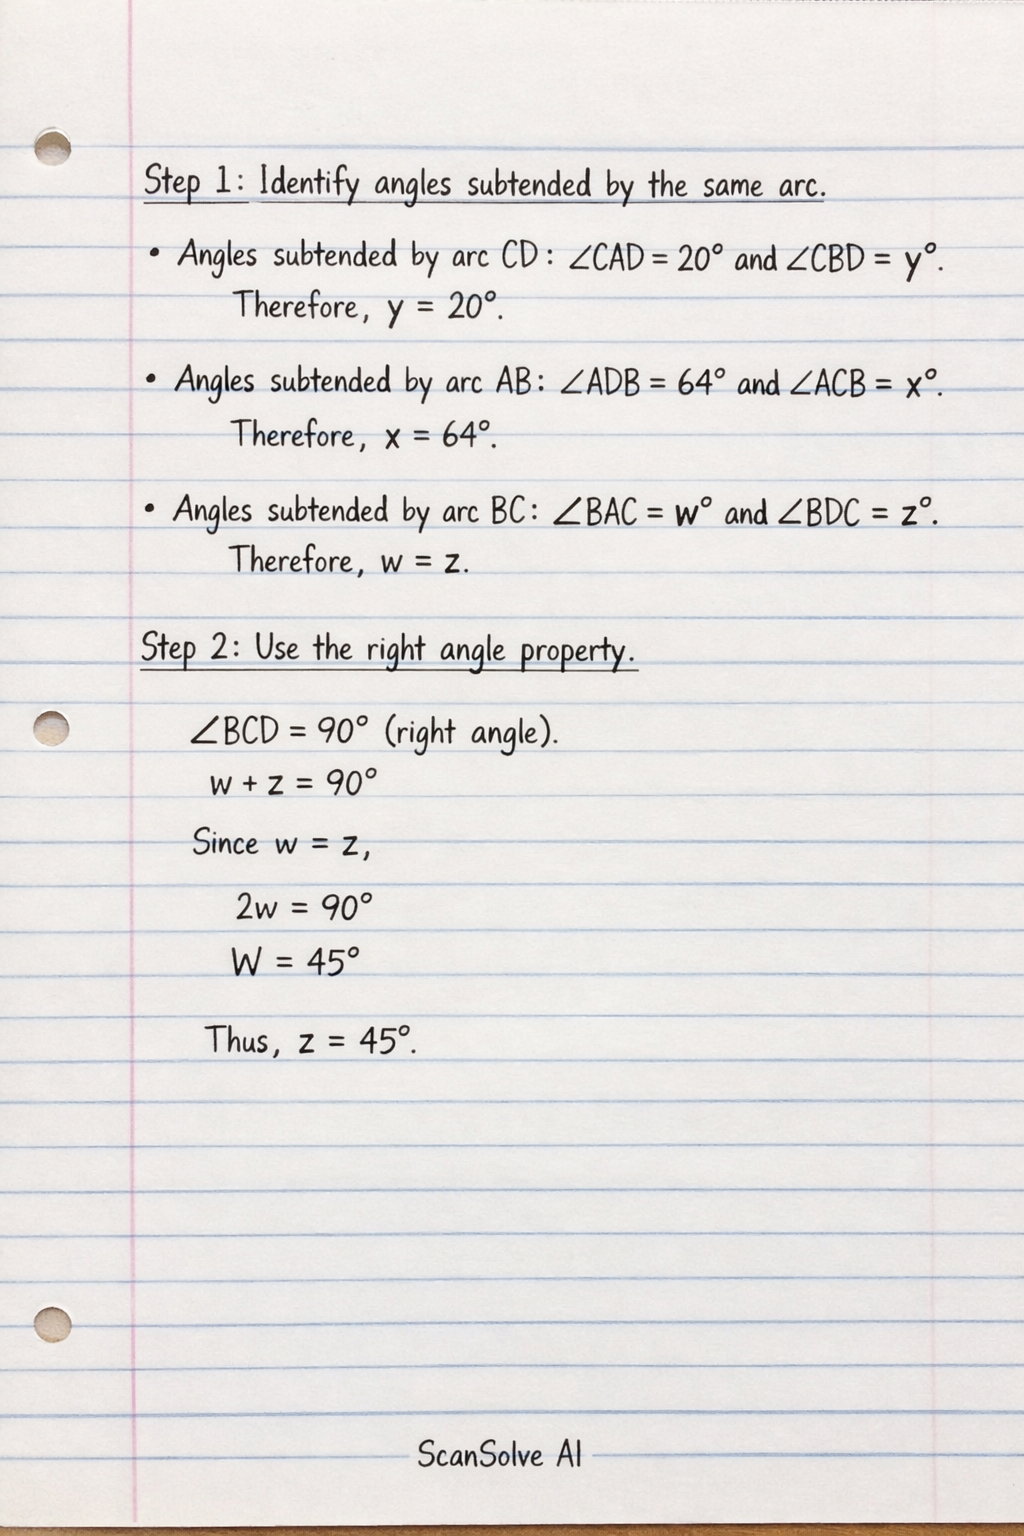 Step 1: Identify angles subtended by the same arc.
• Angles subtended by arc CD: ∠CAD = 20° and ∠CBD = y°.
Therefore, y = 20°.
• Angles subtended by arc AB: ∠ADB = 64° and ∠ACB = x°.
Therefore, x = 64°.
• Angles subtended by arc BC: ∠BAC = w° and ∠BDC = z°.
Therefore, w = z.
Step 2: Use the right angle property.
∠BCD = 90° (right angle).
w + z = 90°
Since w = z,
2w = 90°
W = 45°
Thus, z = 45°.
ScanSolve AI